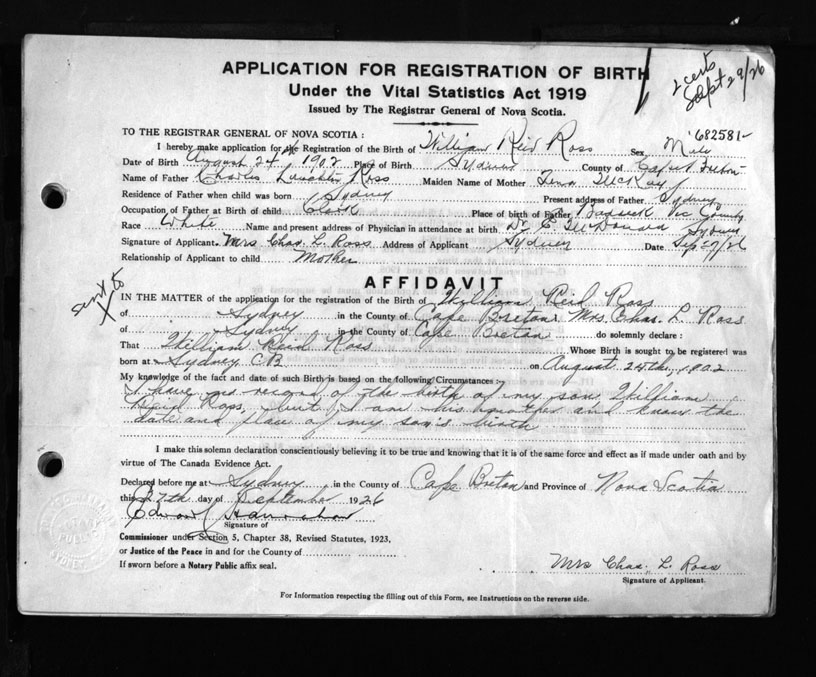 APPLICATION FOR REGISTRATION OF BIRTH
Under the Vital Statistics Act 1919
Issued by The Registrar General of Nova Scotia.
2 certs
Sept 29/26
682581-
TO THE REGISTRAR GENERAL OF NOVA SCOTIA :
I hereby make application for the Registration of the Birth of William Reid Ross Sex Male
Date of Birth August 24th 1902 Place of Birth Sydney County of Cape Breton
Name of Father Charles Ross Maiden Name of Mother McKay
Residence of Father when child was born Sydney Present address of Father Sydney
Occupation of Father at Birth of child Clerk Place of birth of Father Baddeck Vic County
Race White Name and present address of Physician in attendance at birth Dr. E. McDonald Sydney
Signature of Applicant Mrs Chas. L. Ross Address of Applicant Sydney Date Sep 27/26
Relationship of Applicant to child Mother
sent to
X
AFFIDAVIT
IN THE MATTER of the application for the registration of the Birth of William Reid Ross
of Sydney in the County of Cape Breton Mrs. Chas. L. Ross
of Sydney in the County of Cape Breton do solemnly declare :
That William Reid Ross Whose Birth is sought to be registered was
born at Sydney C B on August 24th, 1902
My knowledge of the fact and date of such Birth is based on the following Circumstances :-
I have no record of the birth of my son William
Reid Ross, but I am his mother and know the
date and place of my son's birth
I make this solemn declaration conscientiously believing it to be true and knowing that it is of the same force and effect as if made under oath and by
virtue of The Canada Evidence Act.
Declared before me at Sydney in the County of Cape Breton and Province of Nova Scotia
this 27th day of September 1926
Edward
Signature of
Commissioner under Section 5, Chapter 38, Revised Statutes, 1923,
or Justice of the Peace in and for the County of
If sworn before a Notary Public affix seal.
Mrs Chas. L. Ross
Signature of Applicant.
For Information respecting the filling out of this Form, see Instructions on the reverse side.